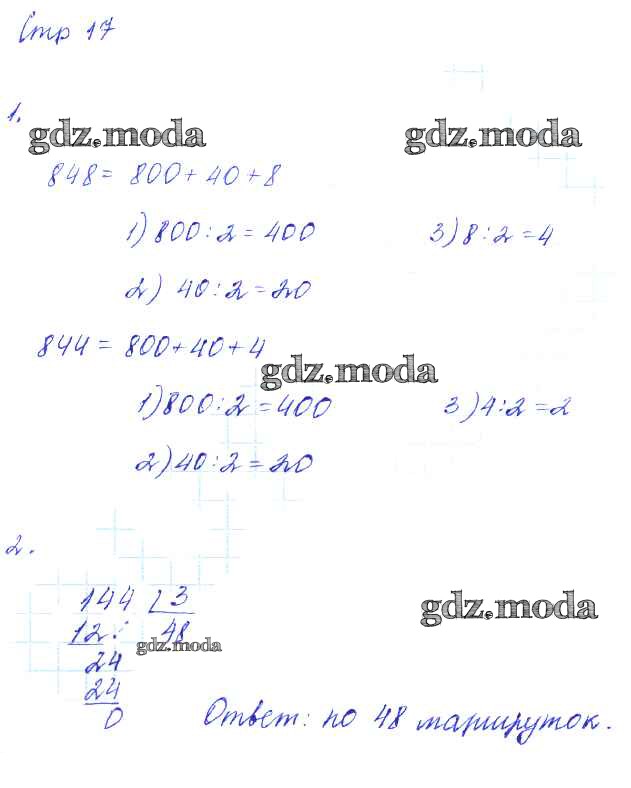 Стр 17
1.
gdz.moda gdz.moda
848 = 800 + 40 + 8
1) 800 : 2 = 400 3) 8 : 2 = 4
2) 40 : 2 = 20
844 = 800 + 40 + 4
gdz.moda
1) 800 : 2 = 400 3) 4 : 2 = 2
2) 40 : 2 = 20
2.
144 3
gdz.moda
12 48
gdz.moda
24
24
0 Ответ: по 48 маршруток.